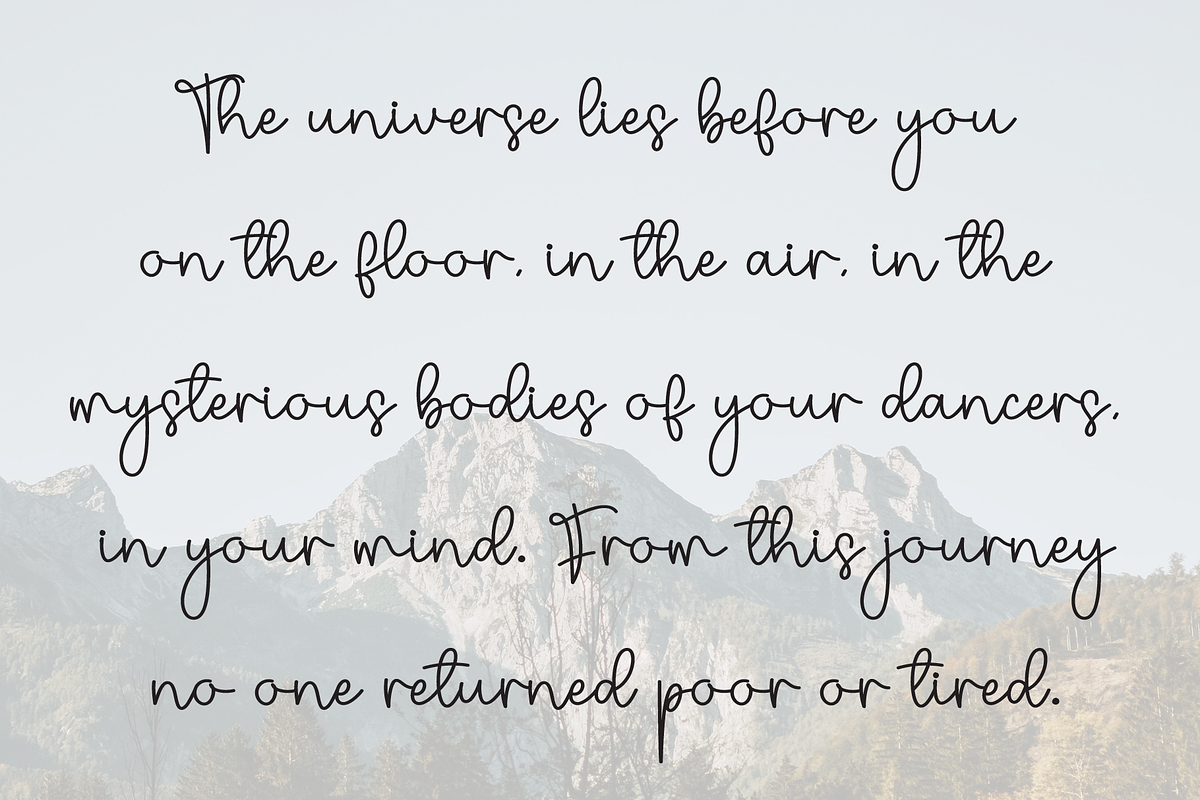 The universe lies before you
on the floor, in the air, in the
mysterious bodies of your dancers,
in your mind. From this journey
no one returned poor or tired.